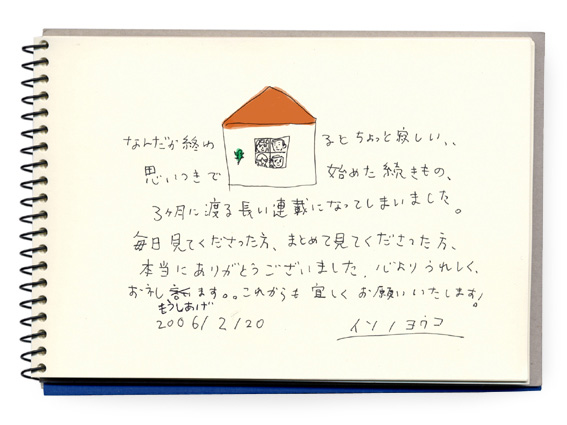 なんだか終わるとちょっと寂しい、、
思いつきで始めた続きもの、
3ヶ月に渡る長い連載になってしまいました。
毎日見てくださった方、まとめて見てくださった方、
本当にありがとうございました。心よりうれしく、
お礼ます。。これからも宜しくお願いいたします!
もうしあげ
2006/2/20 イソノヨウコ